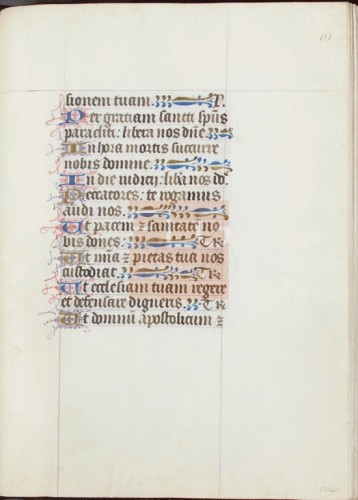 sionem tuam. P.
Per gratiam sancti sp̄us
paracliti: libera nos dn̄e.
In hora mortis succurre
nobis domine.
In die iudicij: lib̄a nos do.
Peccatores: te rogamus
audi nos.
Ut pacem ⁊ sanitatē no
bis dones: T R
Ut m̄ia ⁊ pietas tua nos
custodiat. T R
Ut ecclesiam tuam regere
et defensare digneris. T R
Ut domnū apostolicum ⁊